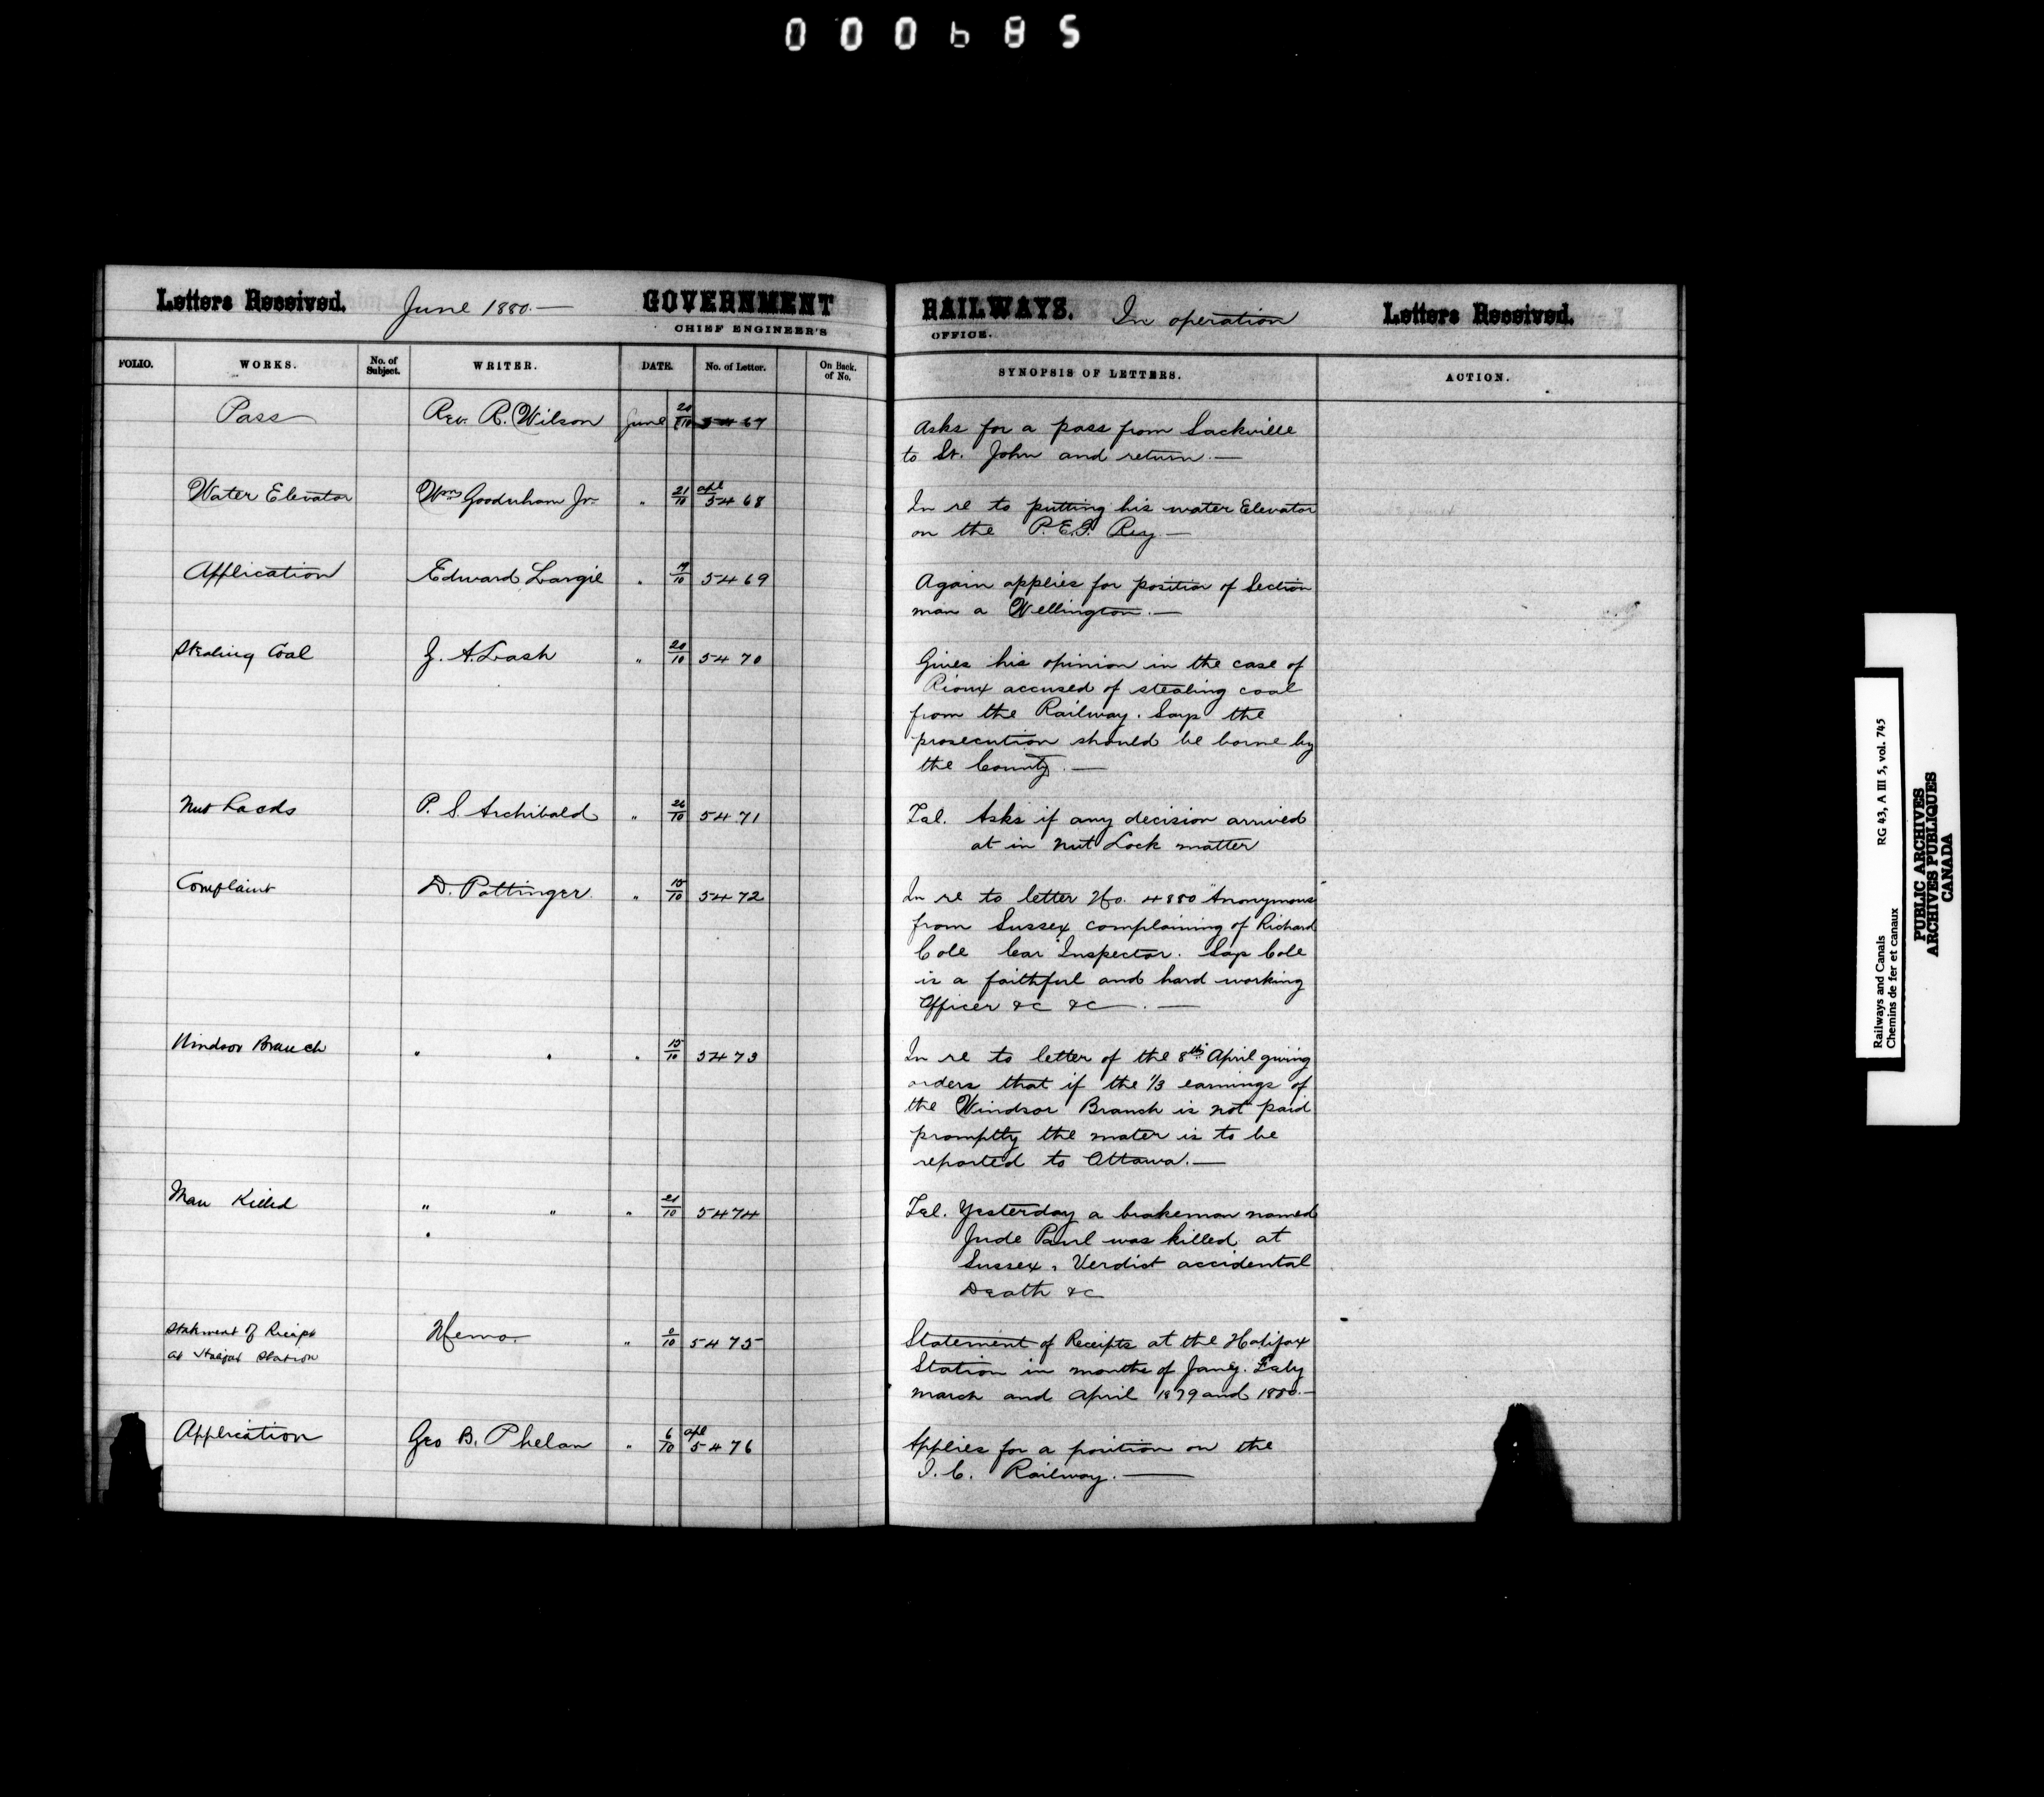 000685
Letters Received. June 1880.— GOVERNMENT RAILWAYS. In operation Letters Received.
CHIEF ENGINEER'S OFFICE.
FOLIO. WORKS. No. of Subject. WRITER. DATE. No. of Letter. On Back of No. SYNOPSIS OF LETTERS. ACTION.
Pass Rev. R. Wilson June 20/10 5467 Asks for a pass from Sackville
to St. John and return.—
Water Elevator Wm Gooderham Jr. " 21/10 apl 5468 In re to putting his water Elevator
on the P.E.I. Ry.—
Application Edward Largie " 19/10 5469 Again applies for position of Section
man a Wellington.—
Stealing Coal Z. A. Lash " 20/10 5470 Gives his opinion in the case of
Rioux accused of stealing coal
from the Railway. Says the
prosecution should be borne by
the County.—
Nut Locks P. S. Archibald " 26/10 5471 Tel. Asks if any decision arrived
at in Nut Lock matter
Complaint D. Pottinger. " 15/10 5472 In re to letter No. 4880 "Anonymous"
from Sussex complaining of Richard
Cole Car Inspector. Says Cole
is a faithful and hard working
Officer &c &c.—
Windsor Branch " " " 15/10 5473 In re to letter of the 8th April giving
orders that if the 1/3 earnings of
the Windsor Branch is not paid
promptly the mater is to be
reported to Ottawa.—
Man Killed " " " 21/10 5474 Tel. Yesterday a brakeman named
Jude Paul was killed at
Sussex, Verdict accidental
Death &c
Statement of Receipts
at Halifax Station Memo. " 0/10 5475 Statement of Receipts at the Halifax
Station in months of Jany. Feby
March and April 1879 and 1880.—
Application Geo B. Phelan " 6/10 apl 5476 Applies for a position on the
I. C. Railway.—
Railways and Canals RG 43, A III 5, vol. 745
Chemins de fer et canaux
PUBLIC ARCHIVES
ARCHIVES PUBLIQUES
CANADA